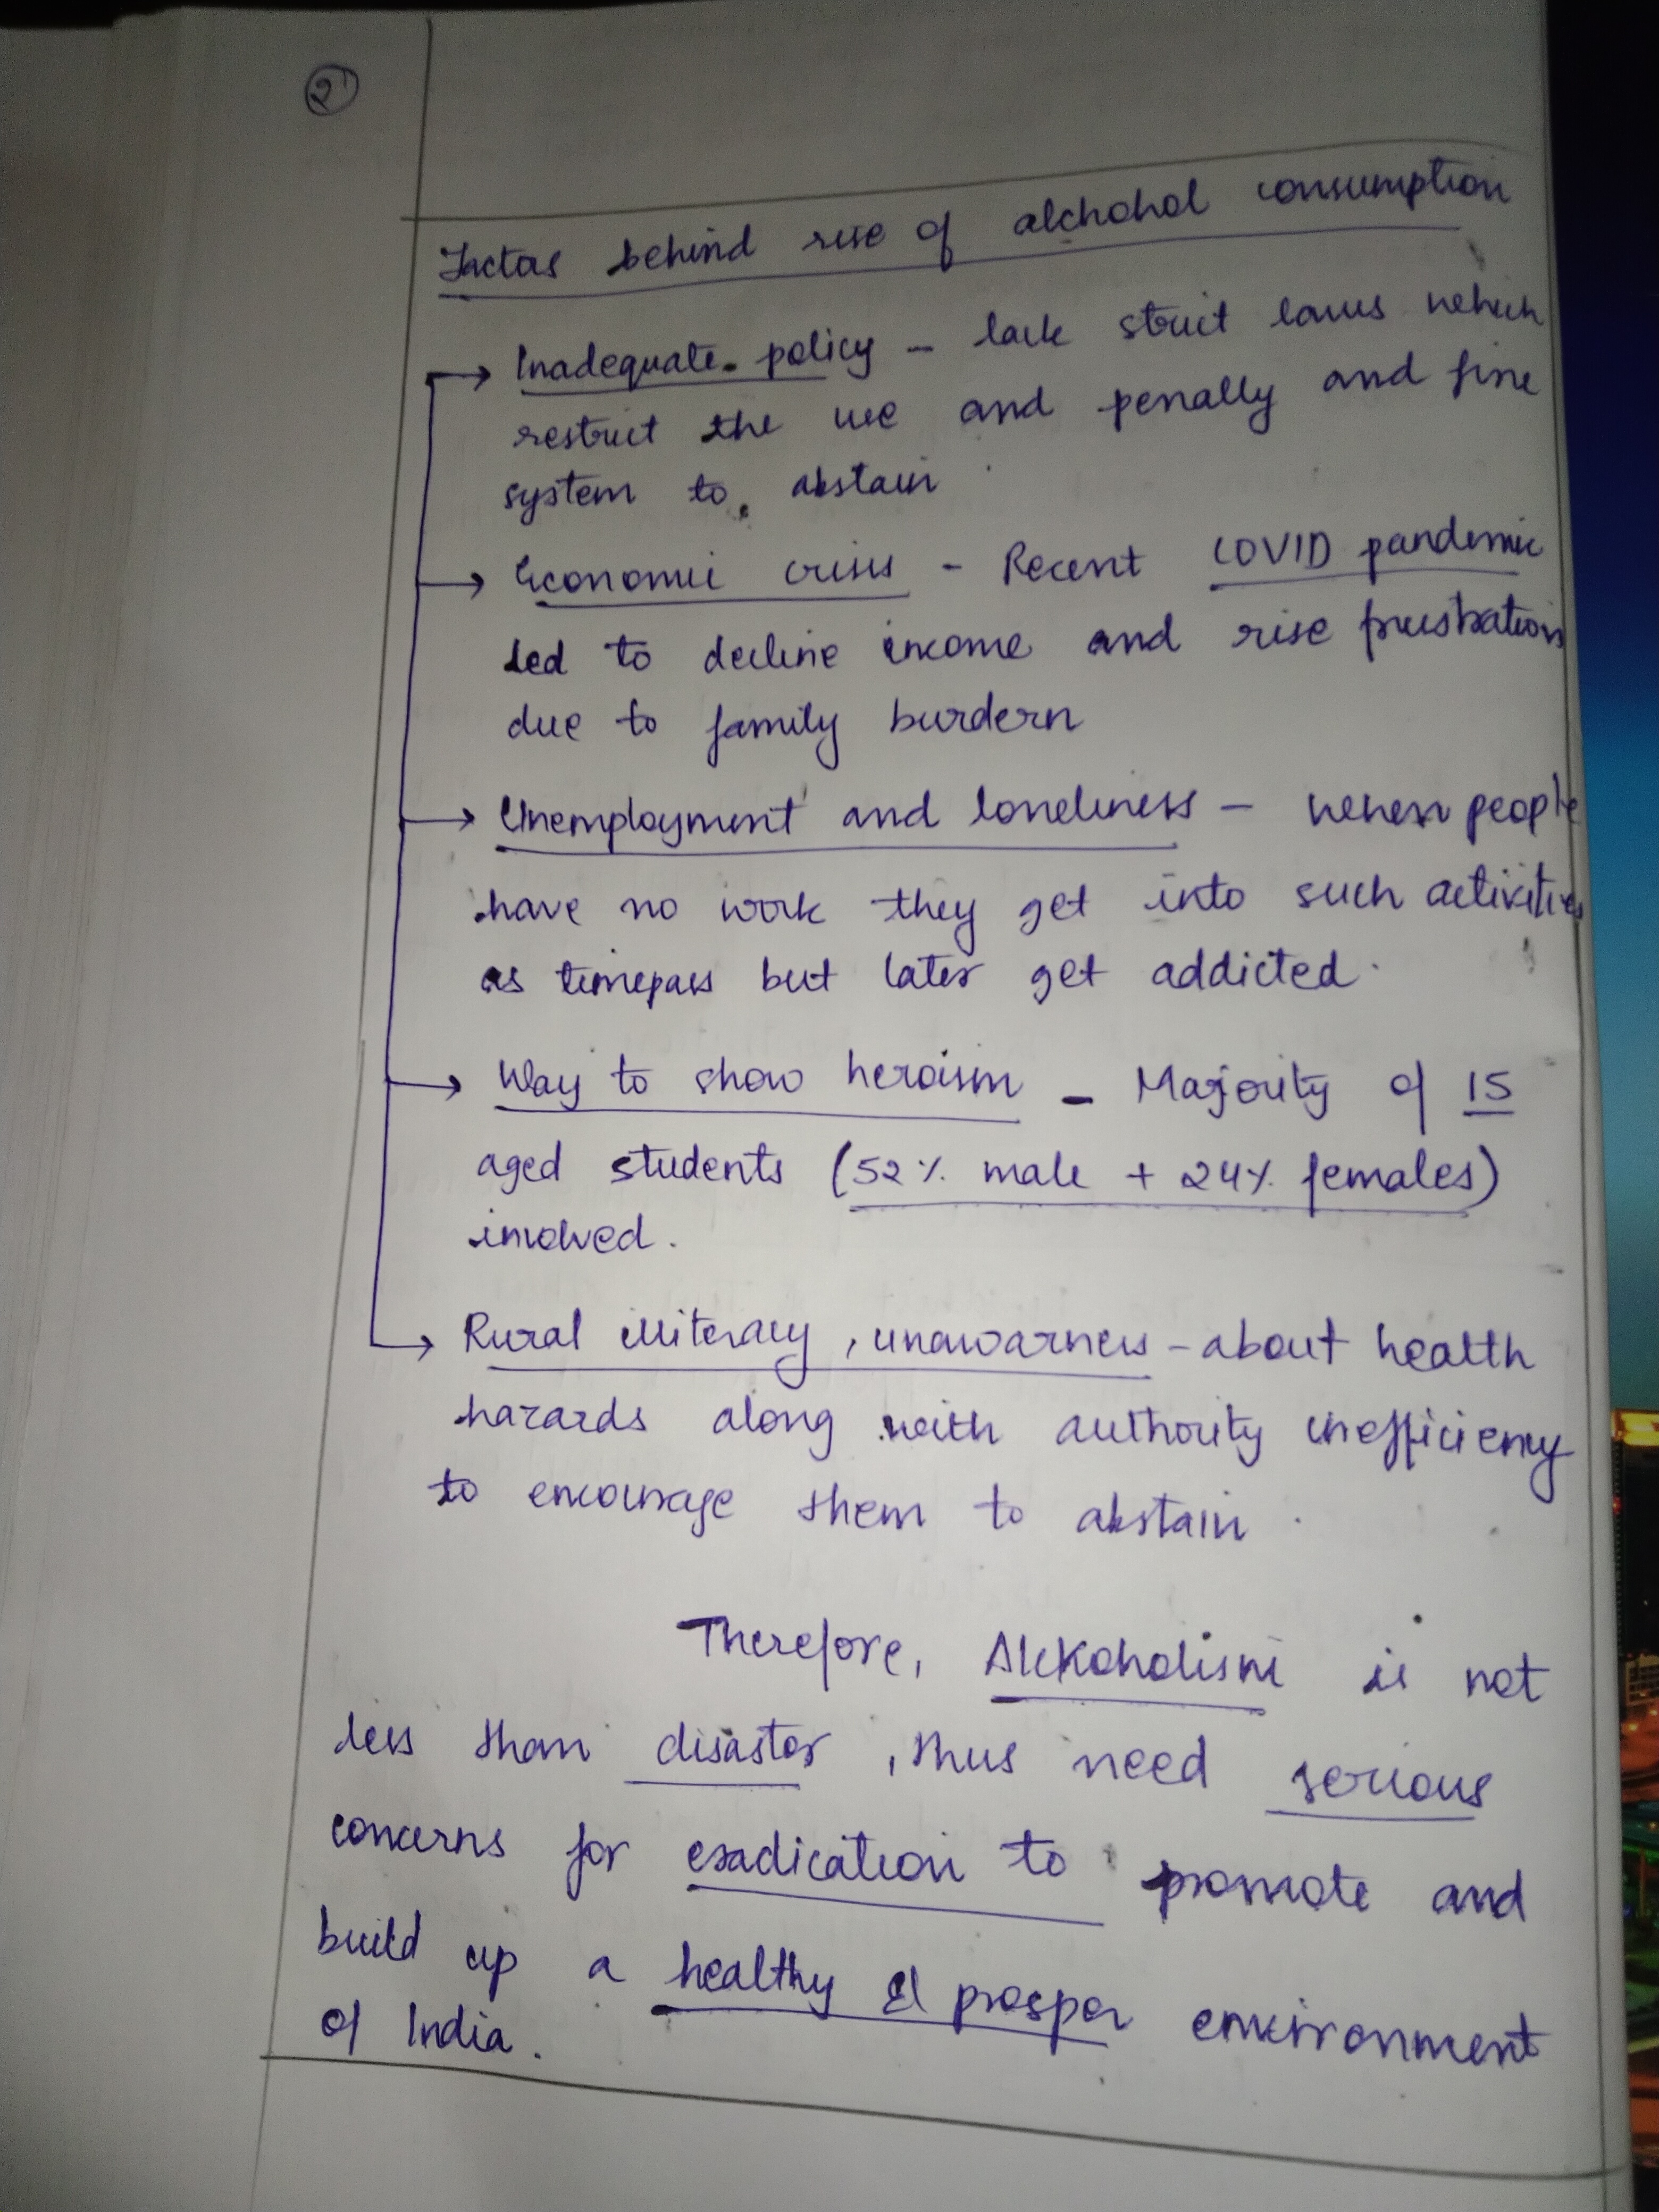 2
Factors behind rise of alchohol consumption
Inadequate policy - lack strict laws which
restrict the use and penally and fine
system to abstain
Economic crisis - Recent COVID pandemic
led to decline income and rise frustration
due to family burdern
Unemployment and loneliness - when people
have no work they get into such activities
as timepass but later get addicted.
Way to show heroism - Majority of 15
aged students (52% male + 24% females)
involved.
Rural illiteracy, unawarness - about health
hazards along with authority inefficiency
to encourage them to abstain.
Therefore, Alckoholism is not
less than disaster, thus need serious
concerns for eradication to promote and
build up a healthy & prosper environment
of India.